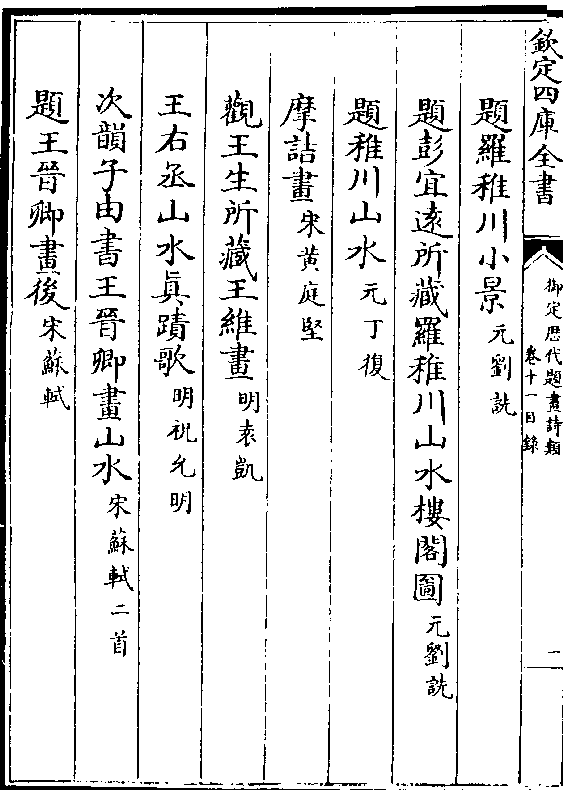 欽定四庫全書
御定歴代題畫詩類
卷十一目錄
一
題羅稚川小景元劉詵
題彭宜逺所藏羅稚川山水樓閣圖元劉詵
題稚川山水元丁復
摩詰畫宋黄庭堅
觀王生所藏王維畫明袁凱
王右丞山水真蹟歌明祝允明
次韻子由書王晉卿畫山水宋蘇軾二首
題王晉卿畫後宋蘇軾